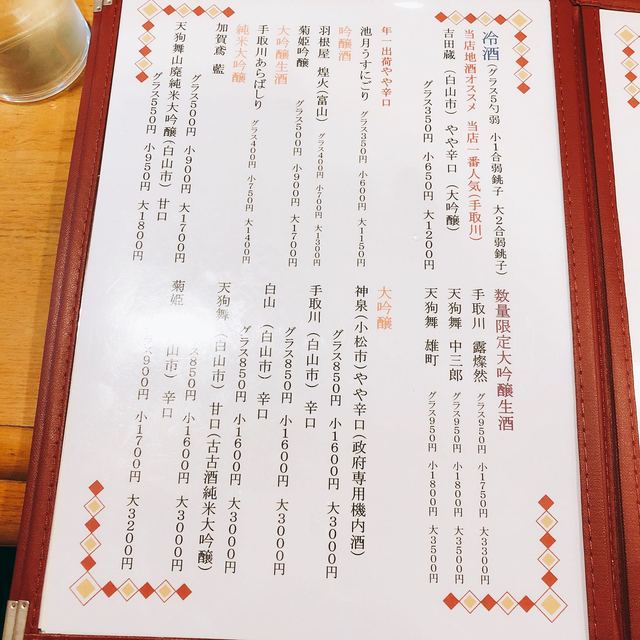 冷酒（グラス５勺弱　小１合弱銚子　大２合弱銚子）
当店地酒オススメ　当店一番人気（手取川）
吉田蔵　（白山市）　やや辛口　（大吟醸）
グラス350円　小650円　大1200円
年一出荷やや辛口
池月うすにごり　グラス350円　小600円　大1150円
吟醸酒
羽根屋　煌火（富山）　グラス400円　小700円　大1300円
菊姫吟醸　グラス500円　小900円　大1700円
大吟醸生酒
手取川あらばしり　グラス400円　小750円　大1400円
純米大吟醸
加賀鳶　藍　グラス500円　小900円　大1700円
天狗舞山廃純米大吟醸（白山市）　甘口
グラス550円　小950円　大1800円
数量限定大吟醸生酒
手取川　露燦然　グラス950円　小1750円　大3300円
天狗舞　中三郎　グラス950円　小1800円　大3500円
天狗舞　雄町　グラス950円　小1800円　大3500円
大吟醸
神泉（小松市）やや辛口（政府専用機内酒）
グラス850円　小1600円　大3000円
手取川　（白山市）　辛口
グラス850円　小1600円　大3000円
白山　（白山市）　辛口
グラス850円　小1600円　大3000円
天狗舞　（白山市）　甘口（古古酒純米大吟醸）
850円　小1600円　大3000円
菊姫　山市）　辛口
900円　小1700円　大3200円